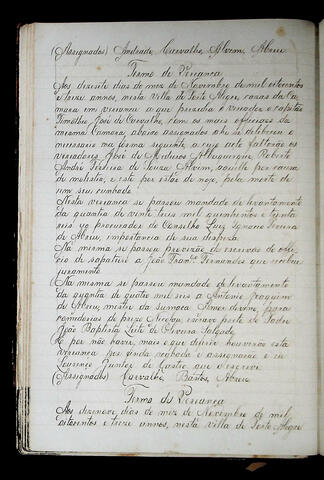 (Assignados) Andrade, Carvalho, Alvim, Abreu
Termo de Vereança
Aos dezesete dias do mez de Novembro de mil oitocentos
e treze annos, nesta Villa de Porto Alegre, cazas da Ca-
mara em vereança a que prezidio o vereador o capitão
Timotheo José de Carvalho, com os mais officiaes da
mesma Camara, abaixo assignados ahi se deliberou o
necessario na forma seguinte, a cujo acto faltarão os
vereadores José Antonio Albuquerque, Roberto
André Pereira de Souza Alvim, aquelle por causa
de molestia, e este por estar de nojo, pela morte de
um seu cunhado.
Nesta vereança se passou mandado de levantamento
da quantia de vinte tres mil quinhentos e trinta
reis ao procurador do Conselho Luiz Ignacio Pereira
de Abreu, importancia de sua despeza.
Na mesma se passou provisão de escrivão do offi-
cio de sapateiro a João Franco Fernandes que recebeu
juramento.
Na mesma se passou mandado de levantamento
da quantia de quatro mil reis a Antonio Joaquim
de Abreu, mestre da sumaca Amor Divino, para
comedorias do prezo
João Baptista Leite de Oliveira Salgado.
E por não haver mais o que deferir houverão esta
vereança por finda acabada e assignarão e eu
Lourenço Junior de Castro que o escrevi.
(Assignados) Carvalho, Bastos, Abreu
Termo de Vereança
Aos dezenove dias do mez de Novembro de mil
oitocentos e treze annos, nesta villa de Porto Alegre